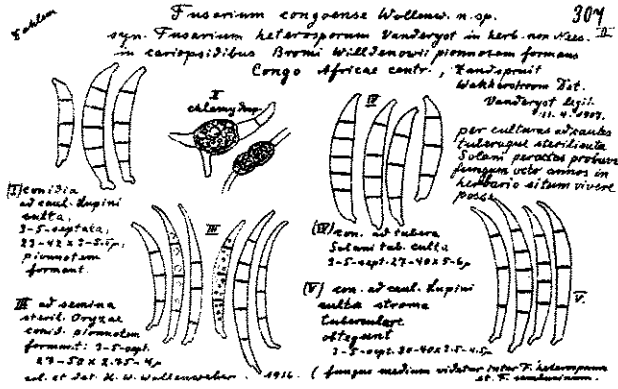 Dahlem
Fusarium congoense Wollenw. n. sp. 307
syn. Fusarium heterosporum Vanderyst in herb. non Nees. II
in cariopsidibus Bromi Willdenowii pionnotem formans
Congo Africae centr., Zandspruit
Wakkerstroom Dst.
Vanderyst legit.
11. 4. 1907.
II
chlamydosp.
IV
per culturas ad caules
tuberaque sterilisata
Solani peractas probavi
fungum octo annos in
herbario situm vivere
posse
(I) conidia
ad caul. Lupini
culta,
3-5-septata,
23-42 x 3-5.5µ,
pionnotem
formant.
III
(IV) con. ad tubera
Solani tub. culta
3-5-sept. 27-40x5-6µ
(V) con. ad caul. Lupini
culta stroma
tuberculare
obtegent
3-5-sept. 30-40x3.5-4.5µ
V.
III ad semina
steril. Oryzae
conid. pionnotem
formant: 3-5-sept.
27-50 x 2.75-4µ
col. et det. H. W. Wollenweber. 1916. (fungus medium videtur inter F. heterosporum
et F.